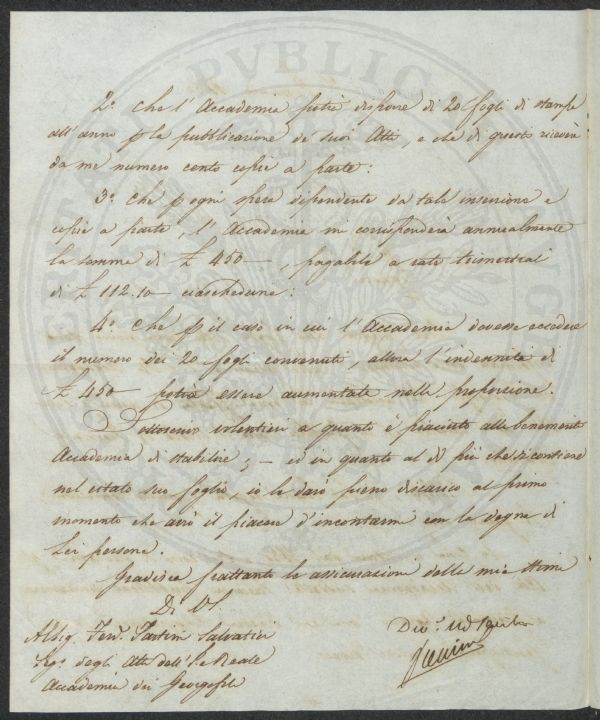 2.° che l'Accademia potrà disporre di 20 fogli di stampa
all'anno p la pubblicazione de' suoi Atti, e che di questi riceverà
da me numero cento copie a parte:
3.° che p ogni spesa dipendente da tale inserzione e
copie a parte, l'Accademia mi corrisponderà annualmente
la somma di £ 450 —, pagabile a rate trimestrali
di £ 112.10 — ciascheduna:
4.° che p il caso in cui l'Accademia dovesse eccedere
il numero dei 20 fogli convenuti, allora l'indennità di
£ 450 — potrà essere aumentata nella proporzione.
Sottoscrivo volentieri a quanto è piaciuto alla benemerita
Accademia di stabilire; — ed in quanto al di più che si contiene
nel citato suo foglio, io le darò pieno discarico al primo
momento che avrò il piacere d'incontrarmi con la degna di
Lei persona.
Gradisca frattanto le assicurazioni della mia stima
Di VS.
All Sig. Ferd. Tartini Salvatici
Seg.° degli Atti dell'I. e Reale
Accademia dei Georgofili
Dev.°
PVBLIC